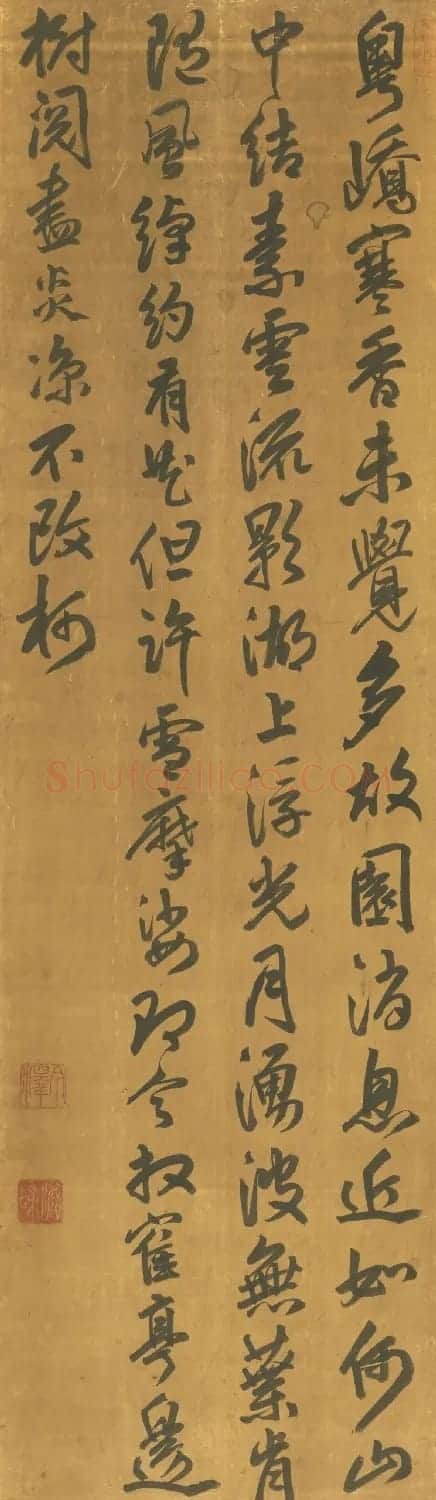 粤嶠寒香未覺多故園消息近如何山
中結素雲流影湖上浮光月湧波無葉肯
隨風綽約有花但許雪摩娑即今放鶴亭邊
樹閱盡炎涼不改柯
Shufaziliao.COM